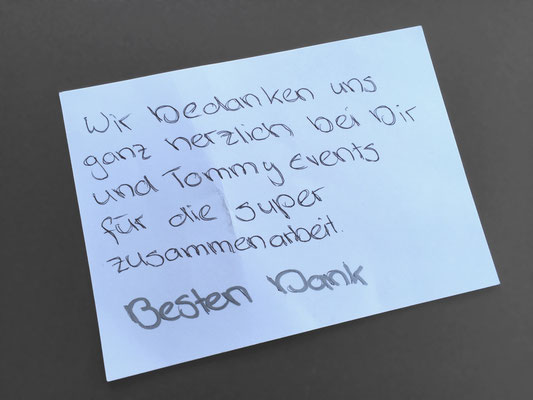 Wir bedanken uns
ganz herzlich bei Dir
und Tommy Events
für die super
zusammenarbeit.
Besten Dank